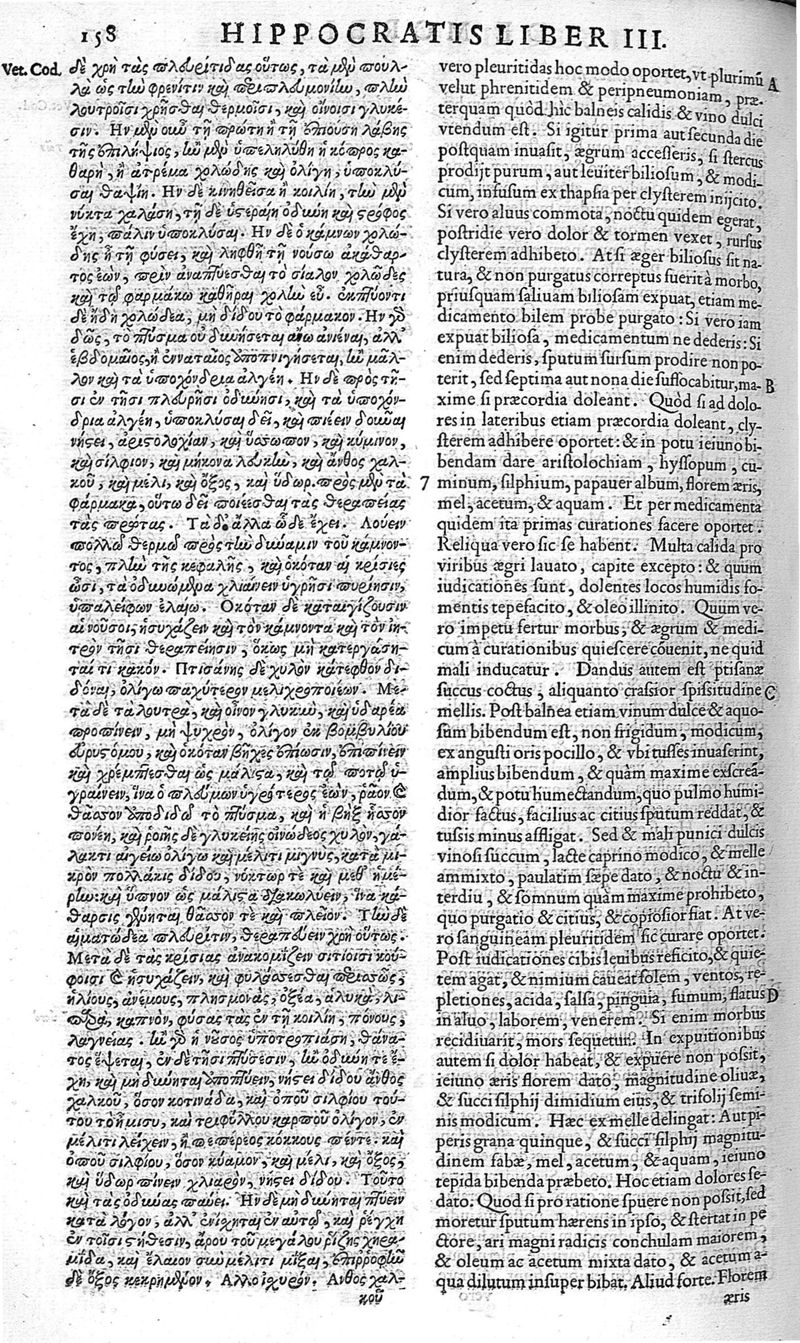 158 HIPPOCRATIS LIBER III.
Vet. Cod.
δὲ χρὴ τὰς πλευρίτιδας οὕτως, τὰ μὲν πουλ-
λὰ ὡς τὴν φρενίτιν καὶ περιπλευμονίην, πλὴν
λουτροῖσι χρῆσθαι θερμοῖσι, καὶ οἴνοισι γλυκέ-
σιν. Ην μὲν οὖν τῇ πρώτῃ ἢ τῇ ἐπιούσῃ λάβῃς
τῆς ἐπιλήψιος, ἢν μὲν ὑπεληλύθῃ ἡ κόπρος κα-
θαρὴ, ἢ ἀτρέμα χολώδης καὶ ὀλίγη, ὑποκλύ-
σαι θαψίῃ. Ην δὲ κινηθεῖσα ἡ κοιλίη, τὴν μὲν
νύκτα χαλάσῃ, τῇ δὲ ὑστεραίῃ ὀδύνη καὶ στρόφος
ἔχῃ, πάλιν ὑποκλυσαι. Ην δὲ ὁ κάμνων χολώ-
δης ᾖ τῇ φύσει, καὶ ληφθῇ τῇ νούσῳ ἀκάθαρ-
τος ἐὼν, πρὶν ἀναπτύεσθαι τὸ σίαλον χολῶδες
καὶ τῷ φαρμάκῳ καθῆραι χολὴν εὖ. ἐκπτύοντι
δὲ ἤδη χολώδεα, μὴ δίδου τὸ φάρμακον. Ην γὰρ
δῷς, τὸ πτύσμα οὐ δυνήσεται ἄνω ἀνιέναι, ἀλλ᾽
ἑβδομαῖος, ἢ ἐνναταῖος ἀποπνιγήσεται, ἢν μᾶλ-
λον καὶ τὰ ὑποχόνδρια ἀλγέῃ. Ην δὲ πρὸς τῇ-
σι ἐν τῇσι πλευρῇσι ὀδύνῃσι, καὶ τὰ ὑποχόν-
δρια ἀλγέῃ, ὑποκλύσαι δεῖ, καὶ πιέειν δοῦναι
νήστει, ἀριστολοχίαν, καὶ ὕσσωπον, καὶ κύμινον,
καὶ σίλφιον, καὶ μήκονα λευκὴν, καὶ ἄνθος χαλ-
κοῦ, καὶ μέλι, καὶ ὄξος, καὶ ὕδωρ. πρὸς μὲν τὰ
φάρμακα, οὕτω δεῖ ποιέεσθαι τὰς θεραπείας
τὰς πρώτας. Τὰ δ᾽ ἄλλα ὧδε ἔχει. Λούειν
πολλῷ θερμῷ πρὸς τὴν δύναμιν τοῦ κάμνον-
τος, πλὴν τῆς κεφαλῆς, καὶ ὁκόταν αἱ κρίσιες
ὦσι, τὰ ὀδυνώμενα χλιαίνειν ὑγρῇσι πυρίῃσιν,
ὑπαλείφων ἐλαίῳ. Οκόταν δὲ καταιγίζουσιν
αἱ νοῦσοι, ἡσυχάζειν καὶ τὸν κάμνοντα καὶ τὸν ἰη-
τρὸν τῇσι θεραπείῃσιν, ὅκως μὴ κατεργάση-
ταί τι κακόν. Πτισάνης δὲ χυλὸν κάτεφθον δι-
δόναι, ὀλίγῳ παχύτερον μελιχροποιέων. Με-
τὰ δὲ τὰ λουτρὰ, καὶ οἶνον γλυκὺν, καὶ ὑδαρέα
προπίνειν, μὴ ψυχρὸν, ὀλίγον ἐκ βομβυλίου
εὐρυστόμου, καὶ ὁκόταν βῆχες ἐπίωσιν, ἐπιπίνειν
καὶ χρέμπτεσθαι ὡς μάλιστα, καὶ τῷ ποτῷ ὑ-
γραίνειν, ἵνα ὁ πλεύμων ὑγρότερος ἐὼν, ῥᾷον &
θᾶσσον ἀποδιδῷ τὸ πτύσμα, καὶ ἡ βὴξ ἧσσον
πονέῃ, καὶ ῥοιῆς δὲ γλυκείης οἰνώδεος χυλὸν, γά-
λακτι αἰγείῳ ὀλίγῳ καὶ μέλιτι μιγνὺς, κατὰ μι-
κρὸν πολλάκις δίδου, νύκτωρ τε καὶ μεθ᾽ ἡμέ-
ρην: καὶ ὕπνον ὡς μάλιστα διακωλύειν, ἵνα κά-
θαρσις γίνηται θᾶσσόν τε καὶ πλεῖον. Τὴν δὲ
αἱματώδεα πλευρῖτιν, θεραπεύειν χρὴ οὕτως.
Μετὰ δὲ τὰς κρίσιας ἀνακομίζειν σιτίοισι κού-
φοισι & ἡσυχάζειν, καὶ φυλάσσεσθαι περισσῶς,
ἡλίους, ἀνέμους, πλησμονὰς, ὀξέα, ἁλυκὰ, λι-
παρὰ, καπνὸν, φύσας τὰς ἐν τῇ κοιλίῃ, πόνους,
λαγνείας. ἢν γὰρ ἡ νοῦσος ὑποτροπιάσῃ, θάνα-
τος ἕψεται, ἐν δὲ τῇσι πτύσεσιν, ἢν ὀδύνη τε ἔ-
χῃ, καὶ μὴ δύνηται ἀποπτύειν, νήστει δίδου ἄνθος
χαλκοῦ, ὅσον κοτινάδα, καὶ ὀποῦ σιλφίου τού-
του τὸ ἥμισυ, καὶ τριφύλλου καρποῦ ὀλίγον, ἐν
μέλιτι λείχειν, ἢ πεπέρεος κόκκους πέντε. καὶ
ὀποῦ σιλφίου, ὅσον κύαμον, καὶ μέλι, καὶ ὄξος,
καὶ ὕδωρ πίνειν χλιαρὸν, νήστει δίδου. Τοῦτο
καὶ τὰς ὀδύνας παύει. Ην δὲ μὴ δύνηται πτύειν
κατὰ λόγον, ἀλλ᾽ ἐνίσχηται ἐν αὐτῷ, καὶ ῥέγχῃ
ἐν τοῖς στήθεσιν, ἄρου τοῦ μεγάλου ῥίζης χηρα-
μίδα, καὶ ἔλαιον σὺν μέλιτι μίξαι, ἐπιρροφεῖν
δὲ ὄξος κεκρημένον. Αλλο ἰχυρόν. Ανθος χαλ-
κοῦ
vero pleuritidas hoc modo oportet, vt plurimũ A
velut phrenitidem & peripneumoniam, præ-
terquam quòd hîc balneis calidis & vino dulci
vtendum est. Si igitur prima aut secunda die
postquam inuasit, ægrum accesseris, si stercus
prodijt purum, aut leuiter biliosum, & modi-
cum, infusum ex thapsia per clysterem inijcito.
Si vero aluus commota, noctu quidem egerat,
postridie vero dolor & tormen vexet, rursus
clysterem adhibeto. At si æger biliosus sit na-
tura, & non purgatus correptus fuerit à morbo,
priusquam saliuam biliosam expuat, etiam me-
dicamento bilem probe purgato: Si vero iam
expuat biliosa, medicamentum ne dederis: Si
enim dederis, sputum sursum prodire non po-
terit, sed septima aut nona die suffocabitur, ma- B
xime si præcordia doleant. Quòd si ad dolo-
res in lateribus etiam præcordia doleant, cly-
sterem adhibere oportet: & in potu ieiuno bi-
bendam dare aristolochiam, hyssopum, cu-
7 minum, silphium, papauer album, florem æris,
mel, acetum, & aquam. Et per medicamenta
quidem ita primas curationes facere oportet.
Reliqua vero sic se habent. Multa calida pro
viribus ægri lauato, capite excepto: & quum
iudicationes sunt, dolentes locos humidis fo-
mentis tepefacito, & oleo illinito. Quum ve-
ro impetu fertur morbus, & ægrum & medi-
cum à curationibus quiescere cõuenit, ne quid
mali inducatur. Dandus autem est ptisanæ
succus coctus, aliquanto crassior spissitudine C
mellis. Post balnea etiam vinum dulce & aquo-
sum bibendum est, non frigidum, modicum,
ex angusti oris pocillo, & vbi tusses inuaserint,
amplius bibendum, & quàm maxime exscreã-
dum, & potu humectandum, quo pulmo humi-
dior factus, facilius ac citius sputum reddat, &
tussis minus affligat. Sed & mali punici dulcis
vinosi succum, lacte caprino modico, & melle
ammixto, paulatim sæpe dato, & noctu & in-
terdiu, & somnum quàm maxime prohibeto,
quo purgatio & citius, & copiosior fiat. At ve-
ro sanguineam pleuritidem sic curare oportet.
Post iudicationes cibis leuibus reficito, & quie-
tem agat, & nimium caueat solem, ventos, re-
pletiones, acida, salsa, pinguia, fumum, flatus D
in aluo, laborem, venerem. Si enim morbus
recidiuarit, mors sequetur. In expuitionibus
autem si dolor habeat, & expuere non possit,
ieiuno æris florem dato, magnitudine oliuæ,
& succi silphij dimidium eius, & trifolij semi-
nis modicum. Hæc ex melle delingat: Aut pi-
peris grana quinque, & succi silphij magnitu-
dinem fabæ, mel, acetum, & aquam, ieiuno
tepida bibenda præbeto. Hoc etiam dolores se-
dato. Quod si pro ratione spuere non possit, sed
moretur sputum hærens in ipso, & stertat in pe
ctore, ari magni radicis conchulam maiorem,
& oleum ac acetum mixta dato, & acetum a-
qua dilutum insuper bibat. Aliud forte. Florem
æris